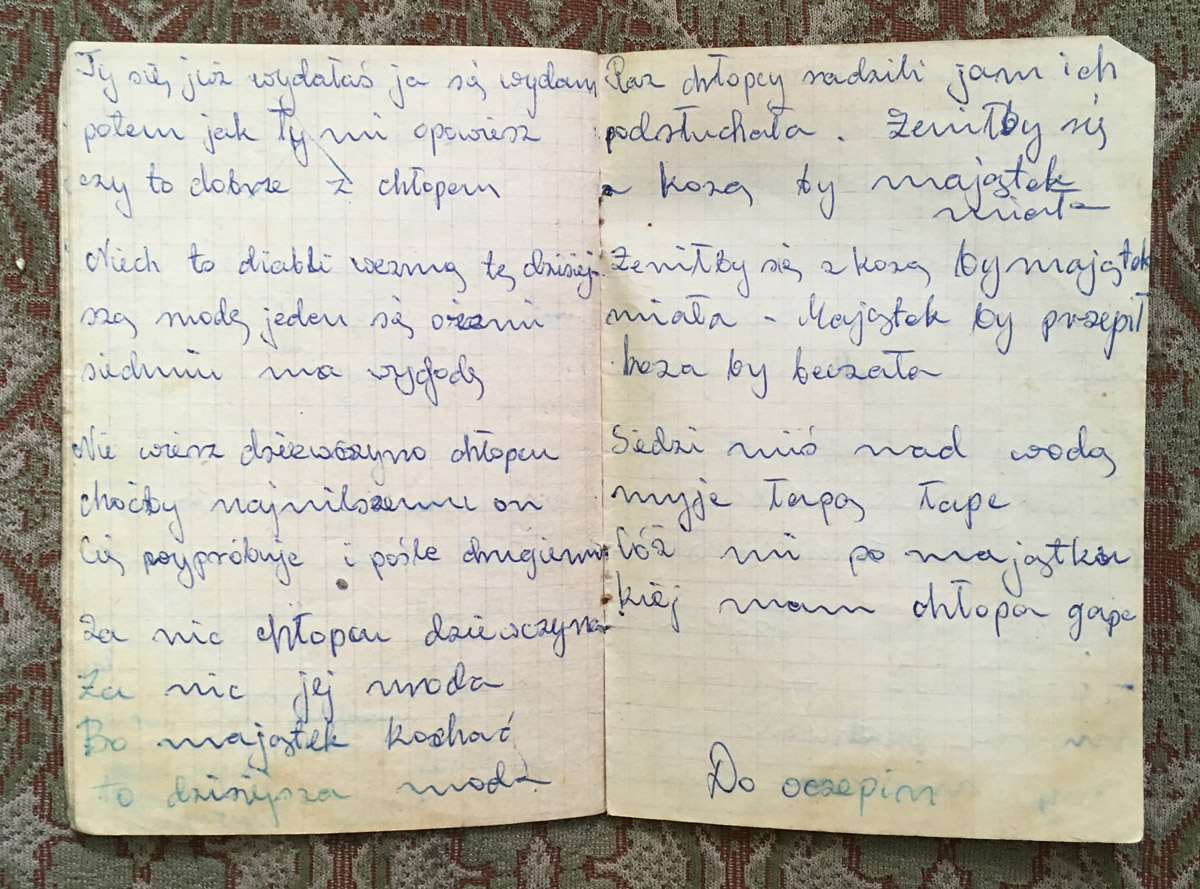 Ty się już wydałaś ja się wydam
potem jak ty mi opowiesz
czy to dobrze z chłopem
Niech to diabli wezmą tę dzisiej-
szą modę jeden się ożeni
siedmiu ma wygodę
Nie wierz dziewczyno chłopcu
choćby najmilszemu on
Cię wypróbuje i pośle drugiemu
Za nic chłopcu dziewczyna
Za nic jej uroda
Bo majątek kochać
to dzisiejsza moda
Raz chłopcy radzili jam ich
podsłuchała. Żeniłby się
z kozą by majątek
miała
Żeniłby się z kozą by majątek
miała - Majątek by przepił
koza by beczała
Siedzi miś nad wodą
myje łapą łape
Cóż mi po majątku
kiej mam chłopa gape
Do oczepin